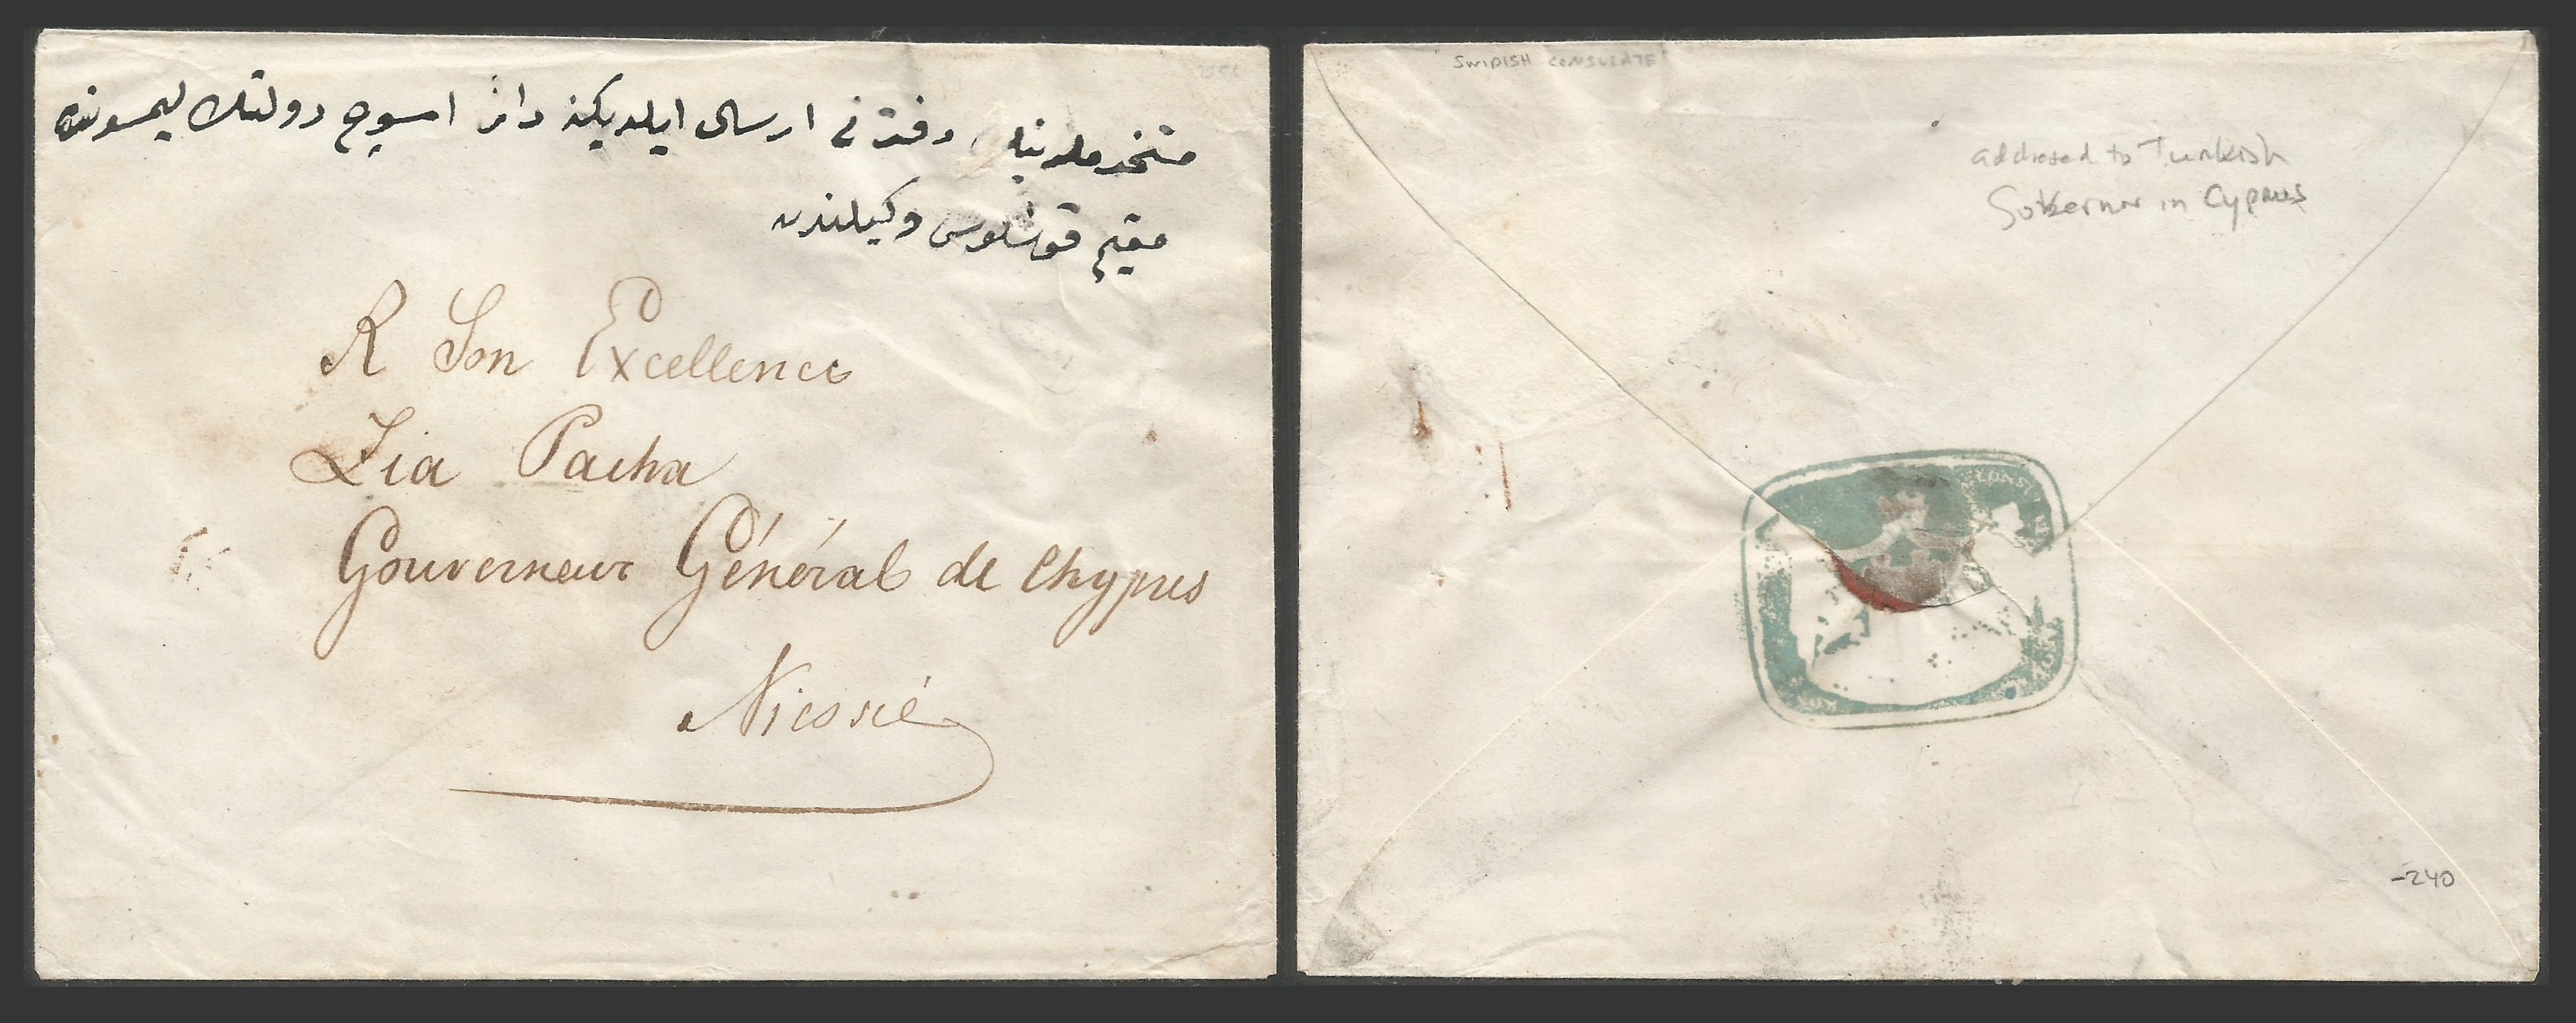 دفترى ارسال ايلديكنه دائر اسوج دولتنك ليمسونده
مقيم قونسلوسى وكيلندن
A Son Excellence
Zia Pacha
Gouverneur Général de Chypres
Nicosie
"SWIDISH CONSULATE"
addressed to Turkish
Governer in Cyprus
CONS
-240